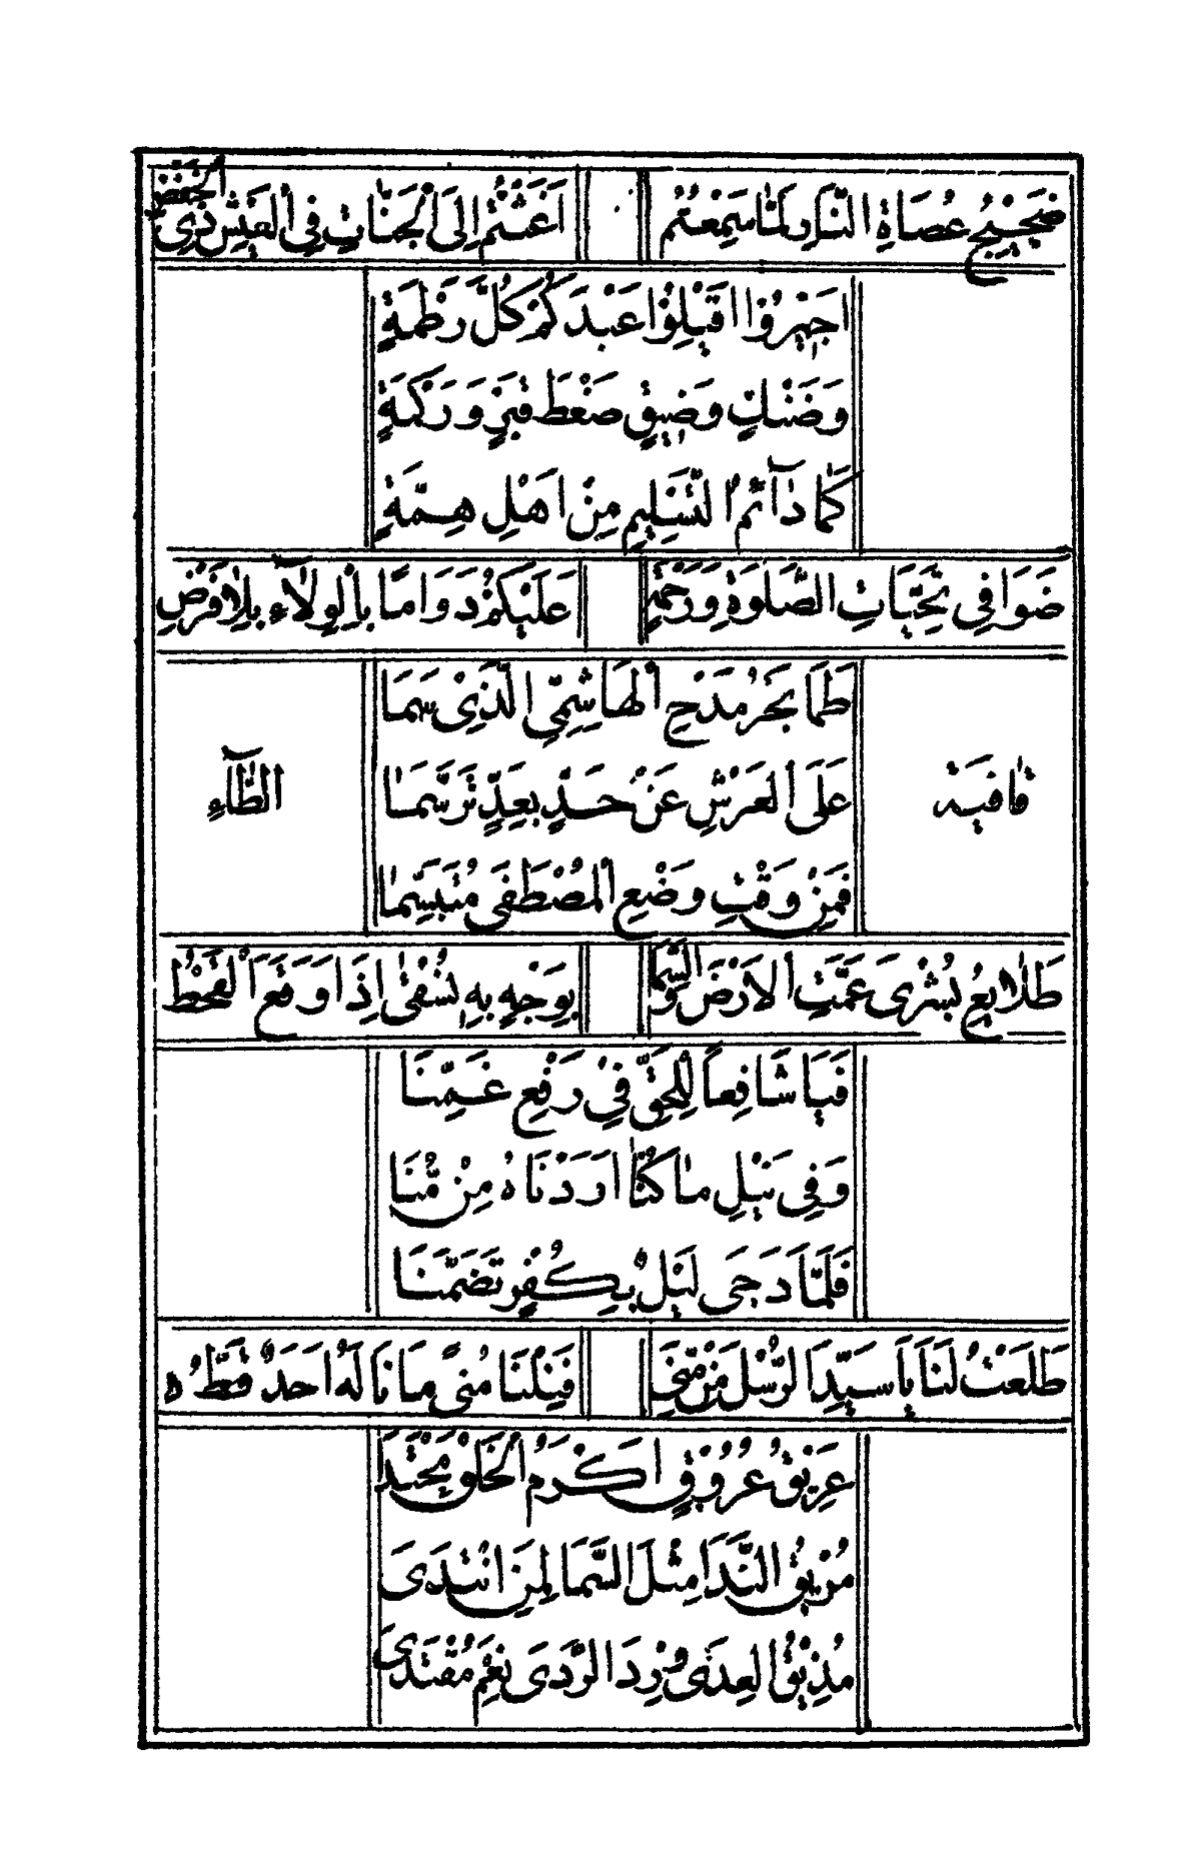 ضَجِيْجُ عُصَاةِ النَّارِ لَمَّا سَمِعْتُمُ اَغَثْتُمْ اِلَى الْجَنَّاتِ فِي الْعَيْشِ ذِى الْخَفْضِ
اَجِيْرُوْا اقْبَلُوْا عَبْدَكُمْ كُلَّ رَطْمَةٍ
وَضَنْكٍ وَضِيْقٍ ضَغْطَ قَبْرٍ وَرَكْمَةٍ
كَمَا دَآئِمُ التَّسْلِيمِ مِنْ اَهْلِ هِمَّةٍ
ضَوَافِي تَحِيَّاتِ الصَّلَوةِ وَرَحْمَةٍ عَلَيْكُمْ دَوَامًا بِالْوِلَآءِ بِلَا فَرْضِ
طَمَا بَحْرُ مَدْحِ الْهَاشِمِيِّ الَّذِىْ سَمَا
عَلَى الْعَرْشِ عَنْ حَدٍّ بِعَدٍّ تَرَسَّمَا
قافية الطَّآءِ
فَمِنْ وَقْتِ وَضْعِ الْمُصْطَفَى مُتَبَسِّمَا
طَلَايِعُ بُشْرَى عَمَّتِ الْاَرْضَ وَالسَّمَا بِوَجْهٍ بِهِ نُسْقَى اِذَا وَقَعَ الْقَحْطُ
فَيَا شَافِعاً لِلْحَقِّ فِيْ رَفْعِ غَمِّنَا
وَفِي نَيْلِ مَا كُنَّا اَرَدْنَاهُ مِنْ مُّنَا
فَلَمَّا دَجَى لَيْلٌ بِكُفْرٍ تَضَمَّنَا
طَلَعْتَ لَنَا يَا سَيِّدَ الرُّسْلِ مِنْ مِّنَى فَنِلْنَا مُنىً مَا نَالَهُ اَحَدٌ قَطُّ
عَرِيْقُ عُرُوْقٍ اَكْرَمُ الْخَلْقِ مَحْتِدَا
مُرِيْقُ النَّدَا مِثْلَ السَّمَا لِمَنِ انْتَدَى
مُذِيْقُ الْعِدَى وِرْدَ الرَّدَى نِعْمَ مُقْتَدَى